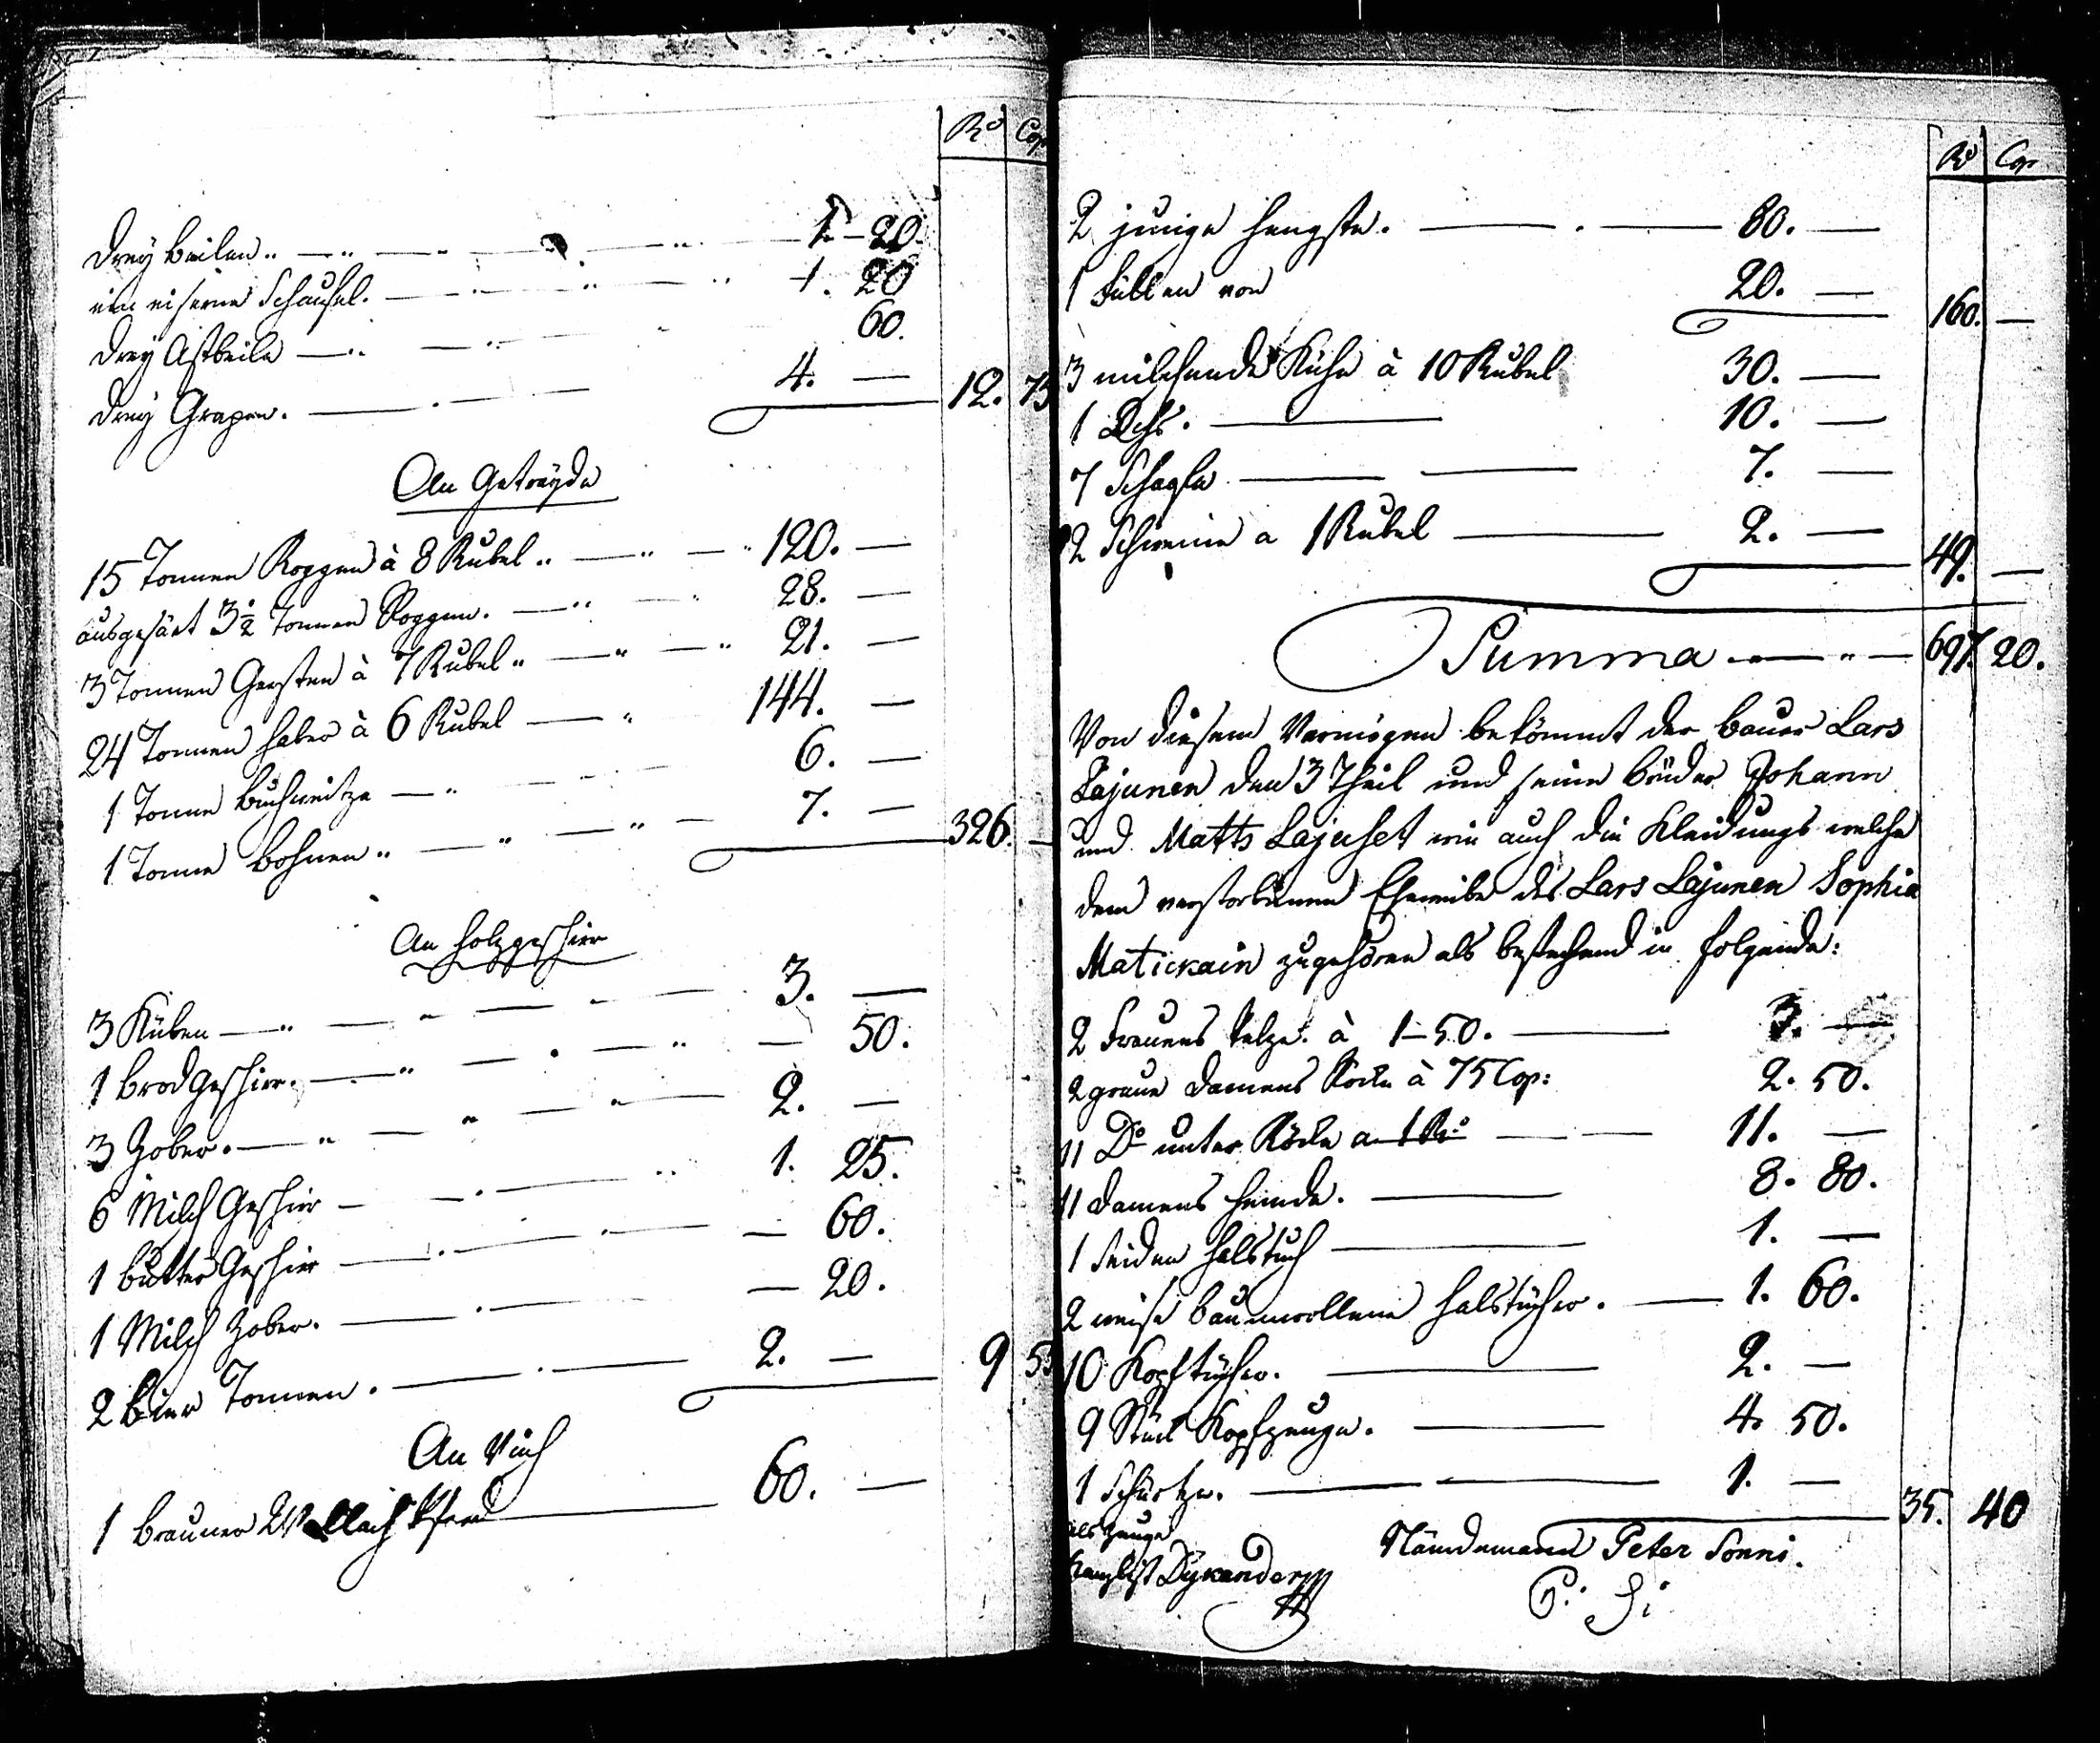 Ro Cop
Drey beilen 1 - 20.
ein eiserne Schaufel. 1. 20
Drey Astbeile 60.
Drey Grapen. 4. — 12. 75
An Getreyde
15 Tonnen Roggen à 8 Rubel 120. —
ausgesäet 3½ Tonnen Roggen. 28. —
3 Tonnen Gersten à 7 Rubel 21. —
24 Tonnen Haber à 6 Rubel 144. —
1 Tonne Buchweitze 6. —
1 Tonne Bohnen 7. — 326. —
An Holzgeshier
3 Küben 3. —
1 Brodgeshier. — 50.
3 Zober. 2. —
6 Milch Geshier 1. 25.
1 Butter Geshier — 60.
1 Milch Zober. — 20.
2 Bier Tonnen. 2. — 9 55
An Vieh
1 brauner Wallach Pferd 60. —
Ro Cop
2 junge Hengste. 80. —
1 Füllen von 20. — 160. —
3 milchende Kühe à 10 Rubel 30. —
1 Ochs. 10. —
7 Schaafe 7. —
2 Schweine a 1 Rubel 2. — 49. —
Summa 697. 20.
Von diesem Vermögen bekömmt der Bauer Lars
Lajunen den 3 Theil und seine Brüder Johann
und Matts Lajuset wie auch die Kleidungs welche
dem verstorbenen Eheweibe des Lars Lajunen Sophia
Matickain zugehören als bestehend in folgende:
2 Frauens Pelze. à 1-50. 3. —
2 graue Damens Röcke à 75 Cop: 2. 50.
11 Do unter Röcke a 1 Ro 11. —
11 Damens Hemde. 8. 80.
1 Seiden Halstuch 1. —
2 weise baumwollene Halstücher. 1. 60.
10 Kopftücher. 2. —
9 Stück Kopfzeuge. 4. 50.
1 Schürtze. 1. — 35. 40
als Zeuge
Kanzlist Dykander
Nämdemann Peter Sonni.
P. S.